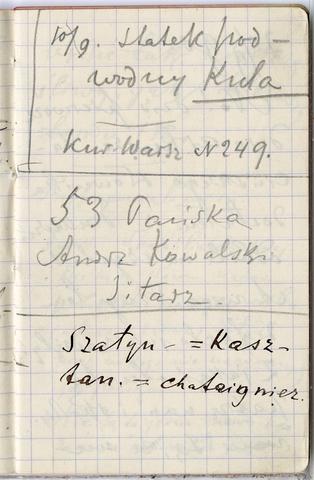 10/9. statek pod-
wodny Kula
Kur. Warsz N 249.
53 Pańska
Andrz Kowalski
Sitarz.
Szatyn - = Kasz-
tan. = chataignier.